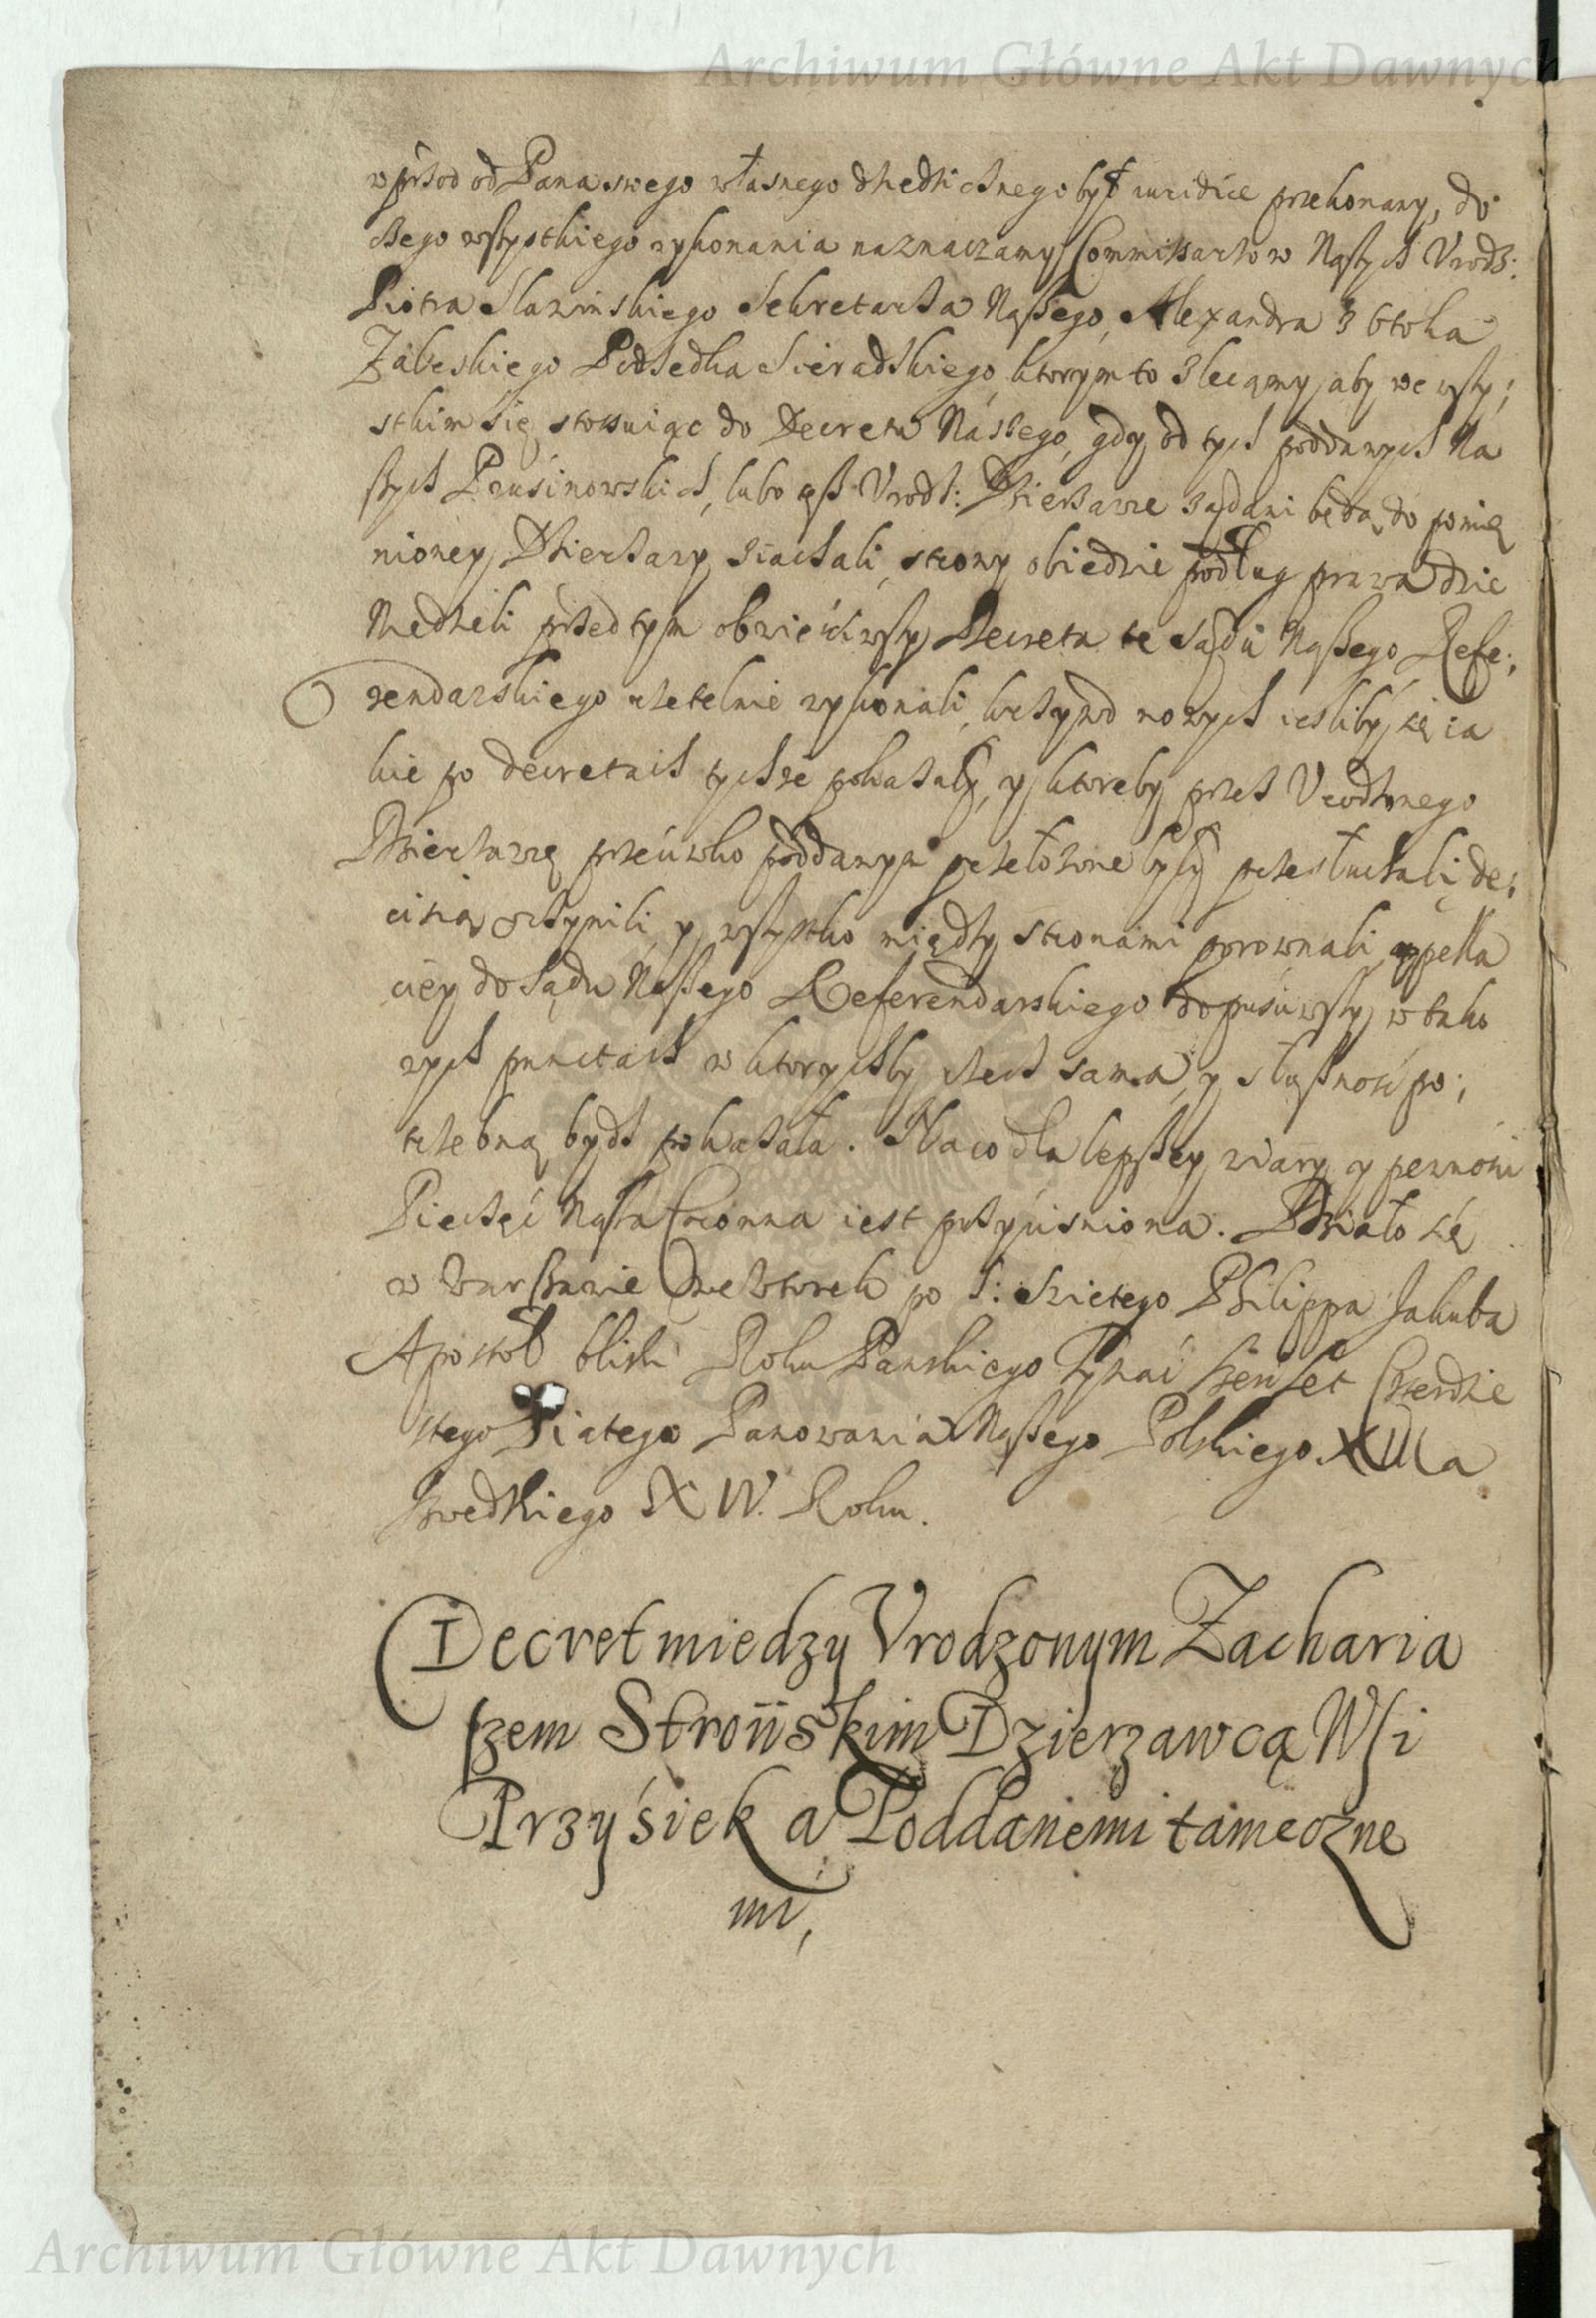 Archiwum Główne Akt Dawnych
wprzod od Pana swego własnego dziedzicznego był iuridice przekonany, do
czego wszystkiego wykonania naznaczamy Commissarzow Naszych Vrodz:
Piotra Slazinskiego Sekretarza Naszego, Alexandra z Otoka
Zaleskiego Podsędka Sieradzkiego, ktorym to zlecamy, aby we wszy;
stkim się stosuiąc do Decretu Naszego, gdy od tych poddanych Na
szych Prusinowskich, lubo też Vrodz: Dzierzawce ządani będą, do pomię
nioney Dzierzawy ziachali, strony obiedwie podług prawa
przed tym obwieściwszy Decreta te Sądu Naszego Refe;
rendarskiego rzetelnie wykonali, krzywd nowych iesliby się ia
kie po decretach tychze pokazały, y ktoreby przez Vrodzonego
Dzierzawcę przeciwko poddanym przełozone były przesłuchali, de;
cisią uczynili, y wszystko między stronami porownali, appella
ciey do Sądu Naszego Referendarskiego dopuściwszy, w tako
wych punctach w ktorychby rzecz sama, y słuszność po;
trzebną bydz pokazała. Na co dla lepszey wiary, y pewności
Pieczęć Nasza Coronna iest przyciśniona. Działo się
w Warszawie we Wtorek po S: Swietego Philippa Jakuba
Apostoł bliski Roku Pańskiego Tysiąc szescset Czterdzie
stego Piątego Panowania Naszego Polskiego XIII a
szwedzkiego XIV. Roku.
Decret miedzy Vrodzonym Zacharia
szem Stroiiskim Dzierzawcą Wsi
Przyśiek a Poddanemi tameczne
mi,
Archiwum Główne Akt Dawnych